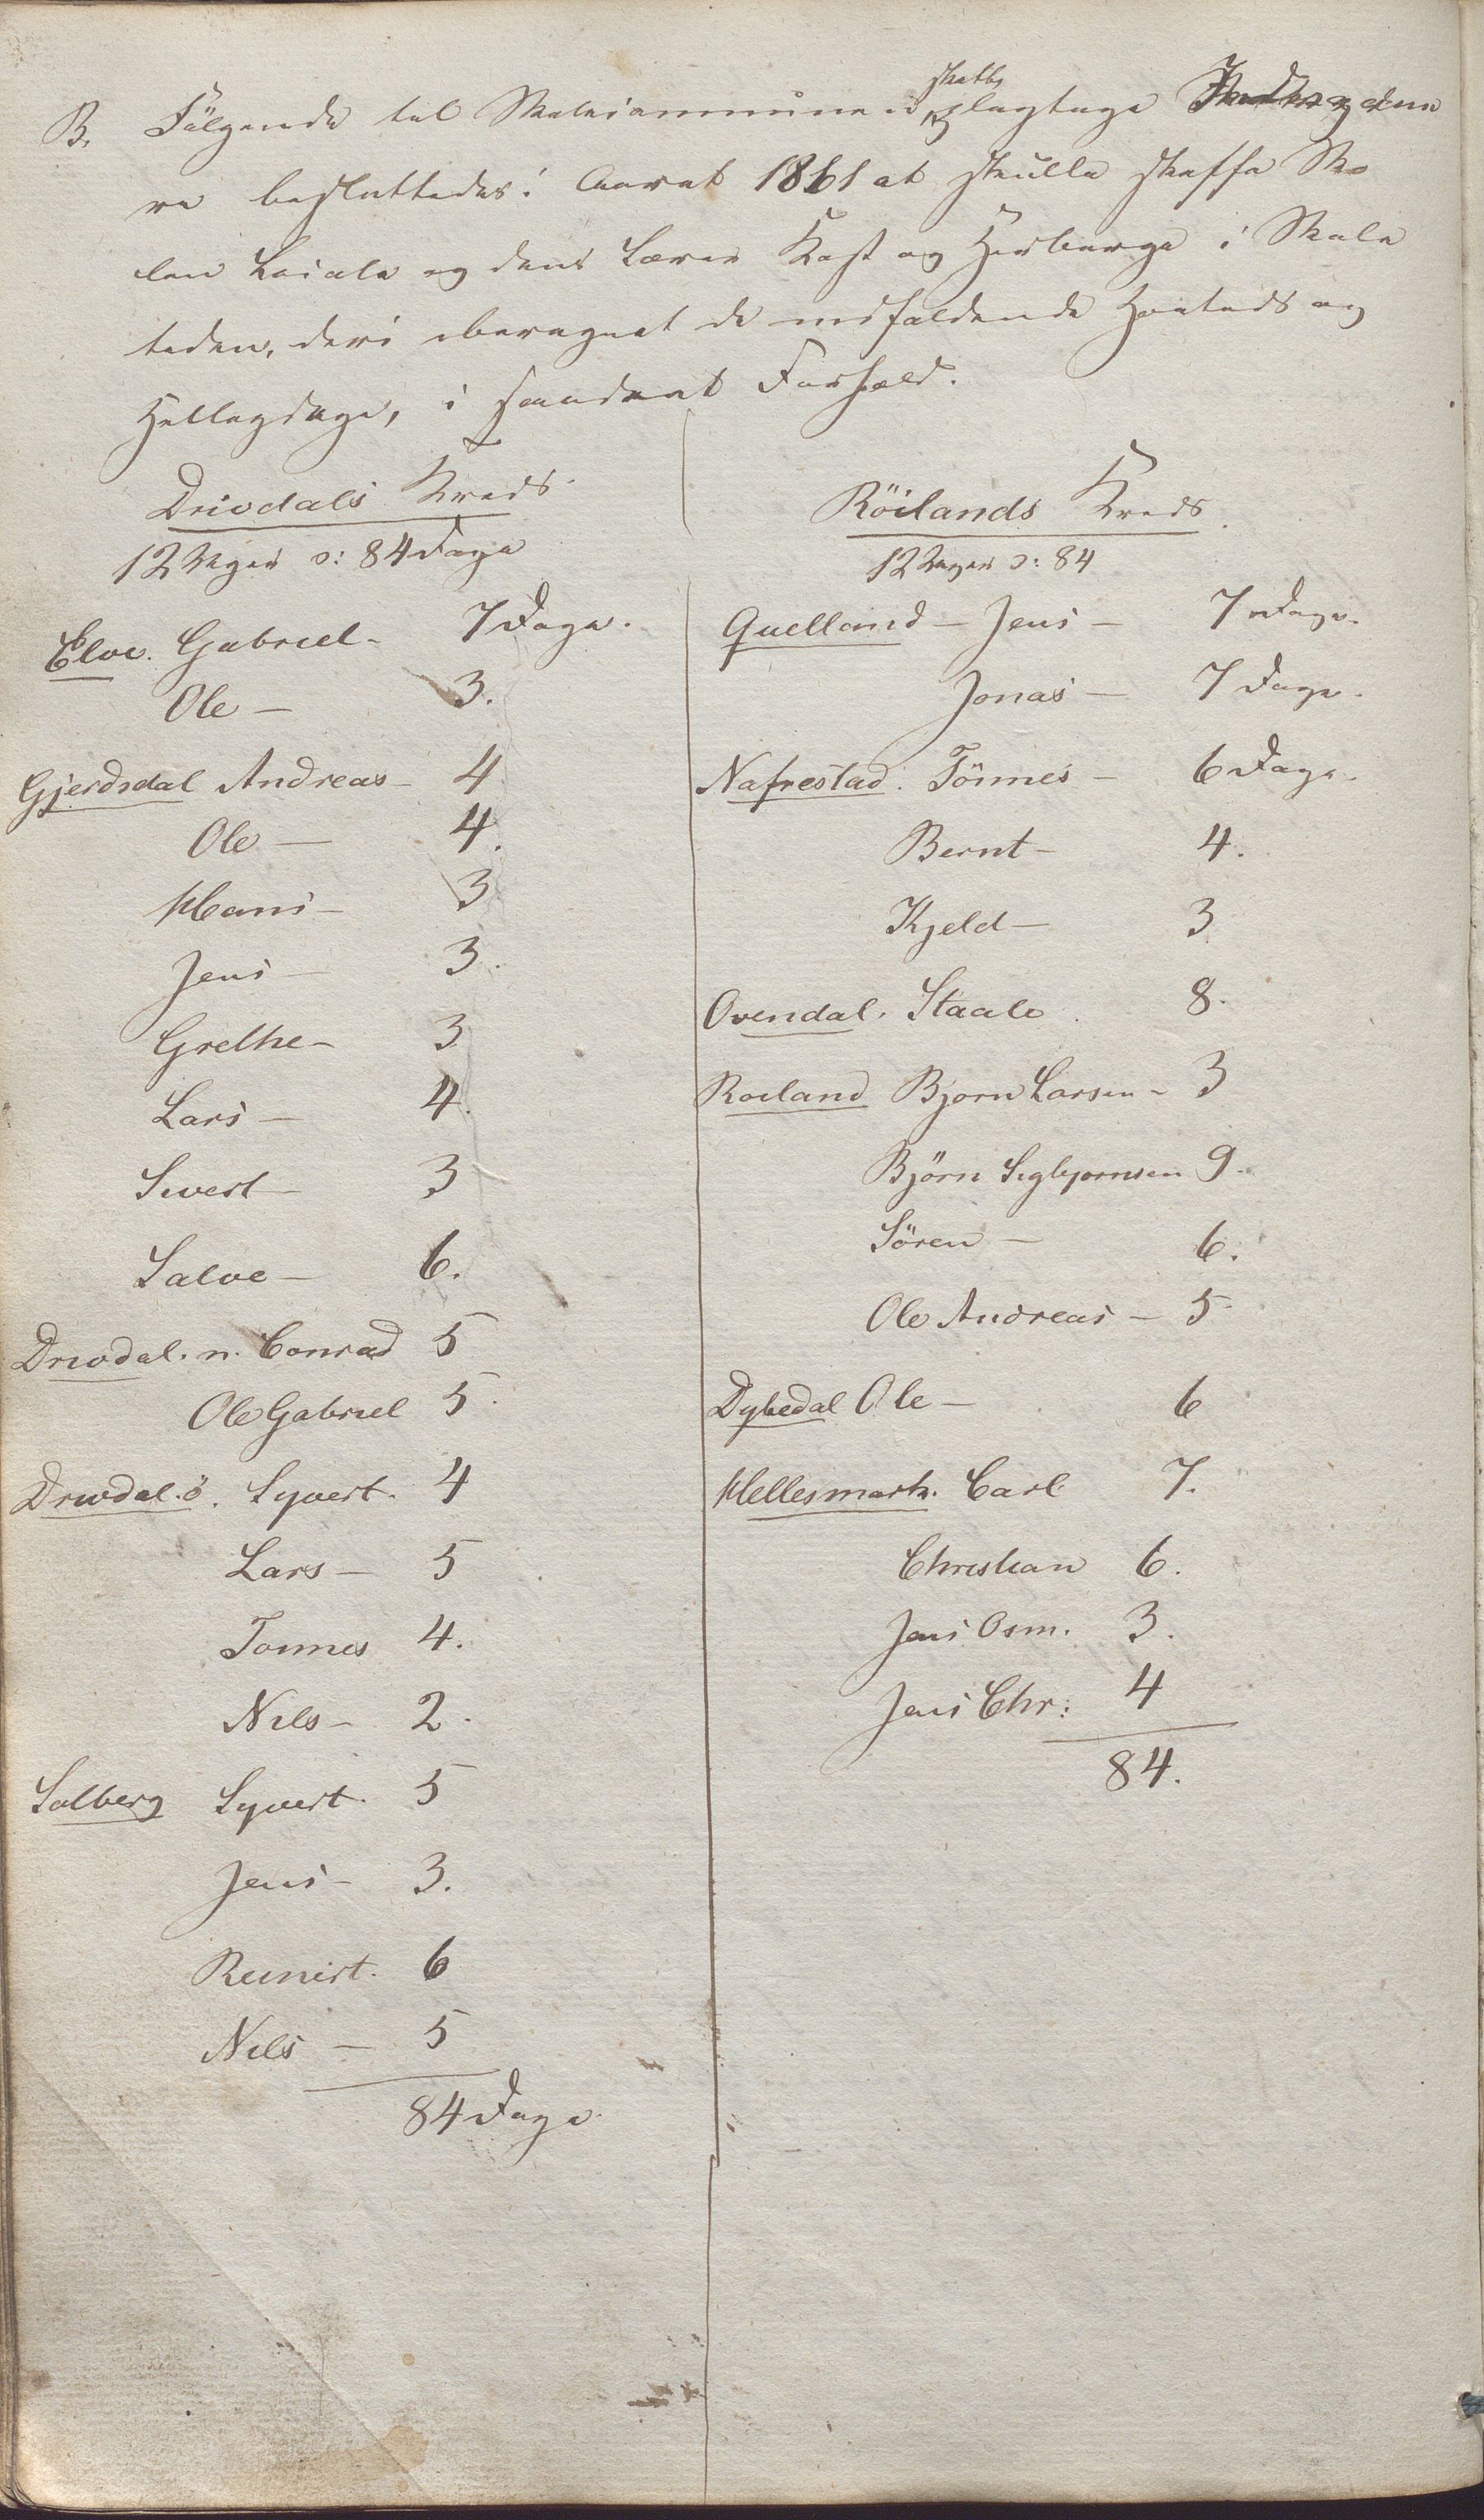 B. Følgende til Skolecommunen skatte
pligtige Jordbrugdene
re besluttedes i Aaret 1861 at skulle skaffe Sko
len Locale og dens Lærer Kost og Herberge i Skole
tiden, deri iberegnet de indfaldende Høitids og
Helligdage, i saadant Forhold.
Drivdals Kreds
12 Uger ɔ: 84 Dage
Elve. Gabriel - 7 Dage.
Ole - 3.
Gjerdsdal Andreas - 4
Ole - 4.
Hans - 3
Jens - 3.
Grethe - 3
Lars - 4.
Sivert - 3
Salve - 6.
Drivdal. n. Conrad 5
Ole Gabriel 5.
Drivdal. ö. Syvert. 4
Lars - 5
Tonnes 4.
Nils - 2.
Solberg Syvert. 5
Jens - 3.
Reinert. 6
Nils - 5
84 Dage.
Röilands Kreds.
12 Uger ɔ: 84
Quelland - Jens - 7 Dage.
Jonas - 7 Dage.
Nafrestad. Tönnes - 6 Dage.
Bernt - 4.
Kjeld - 3
Ovendal. Staale. 8.
Roiland Bjorn Larsen - 3
Björn Sigbjornsen 9.
Sören - 6.
Ole Andreas - 5
Dybedal Ole - 6
Hellesmark. Carl 7.
Christian 6.
Jens Osm. 3.
Jens Chr: 4
84.